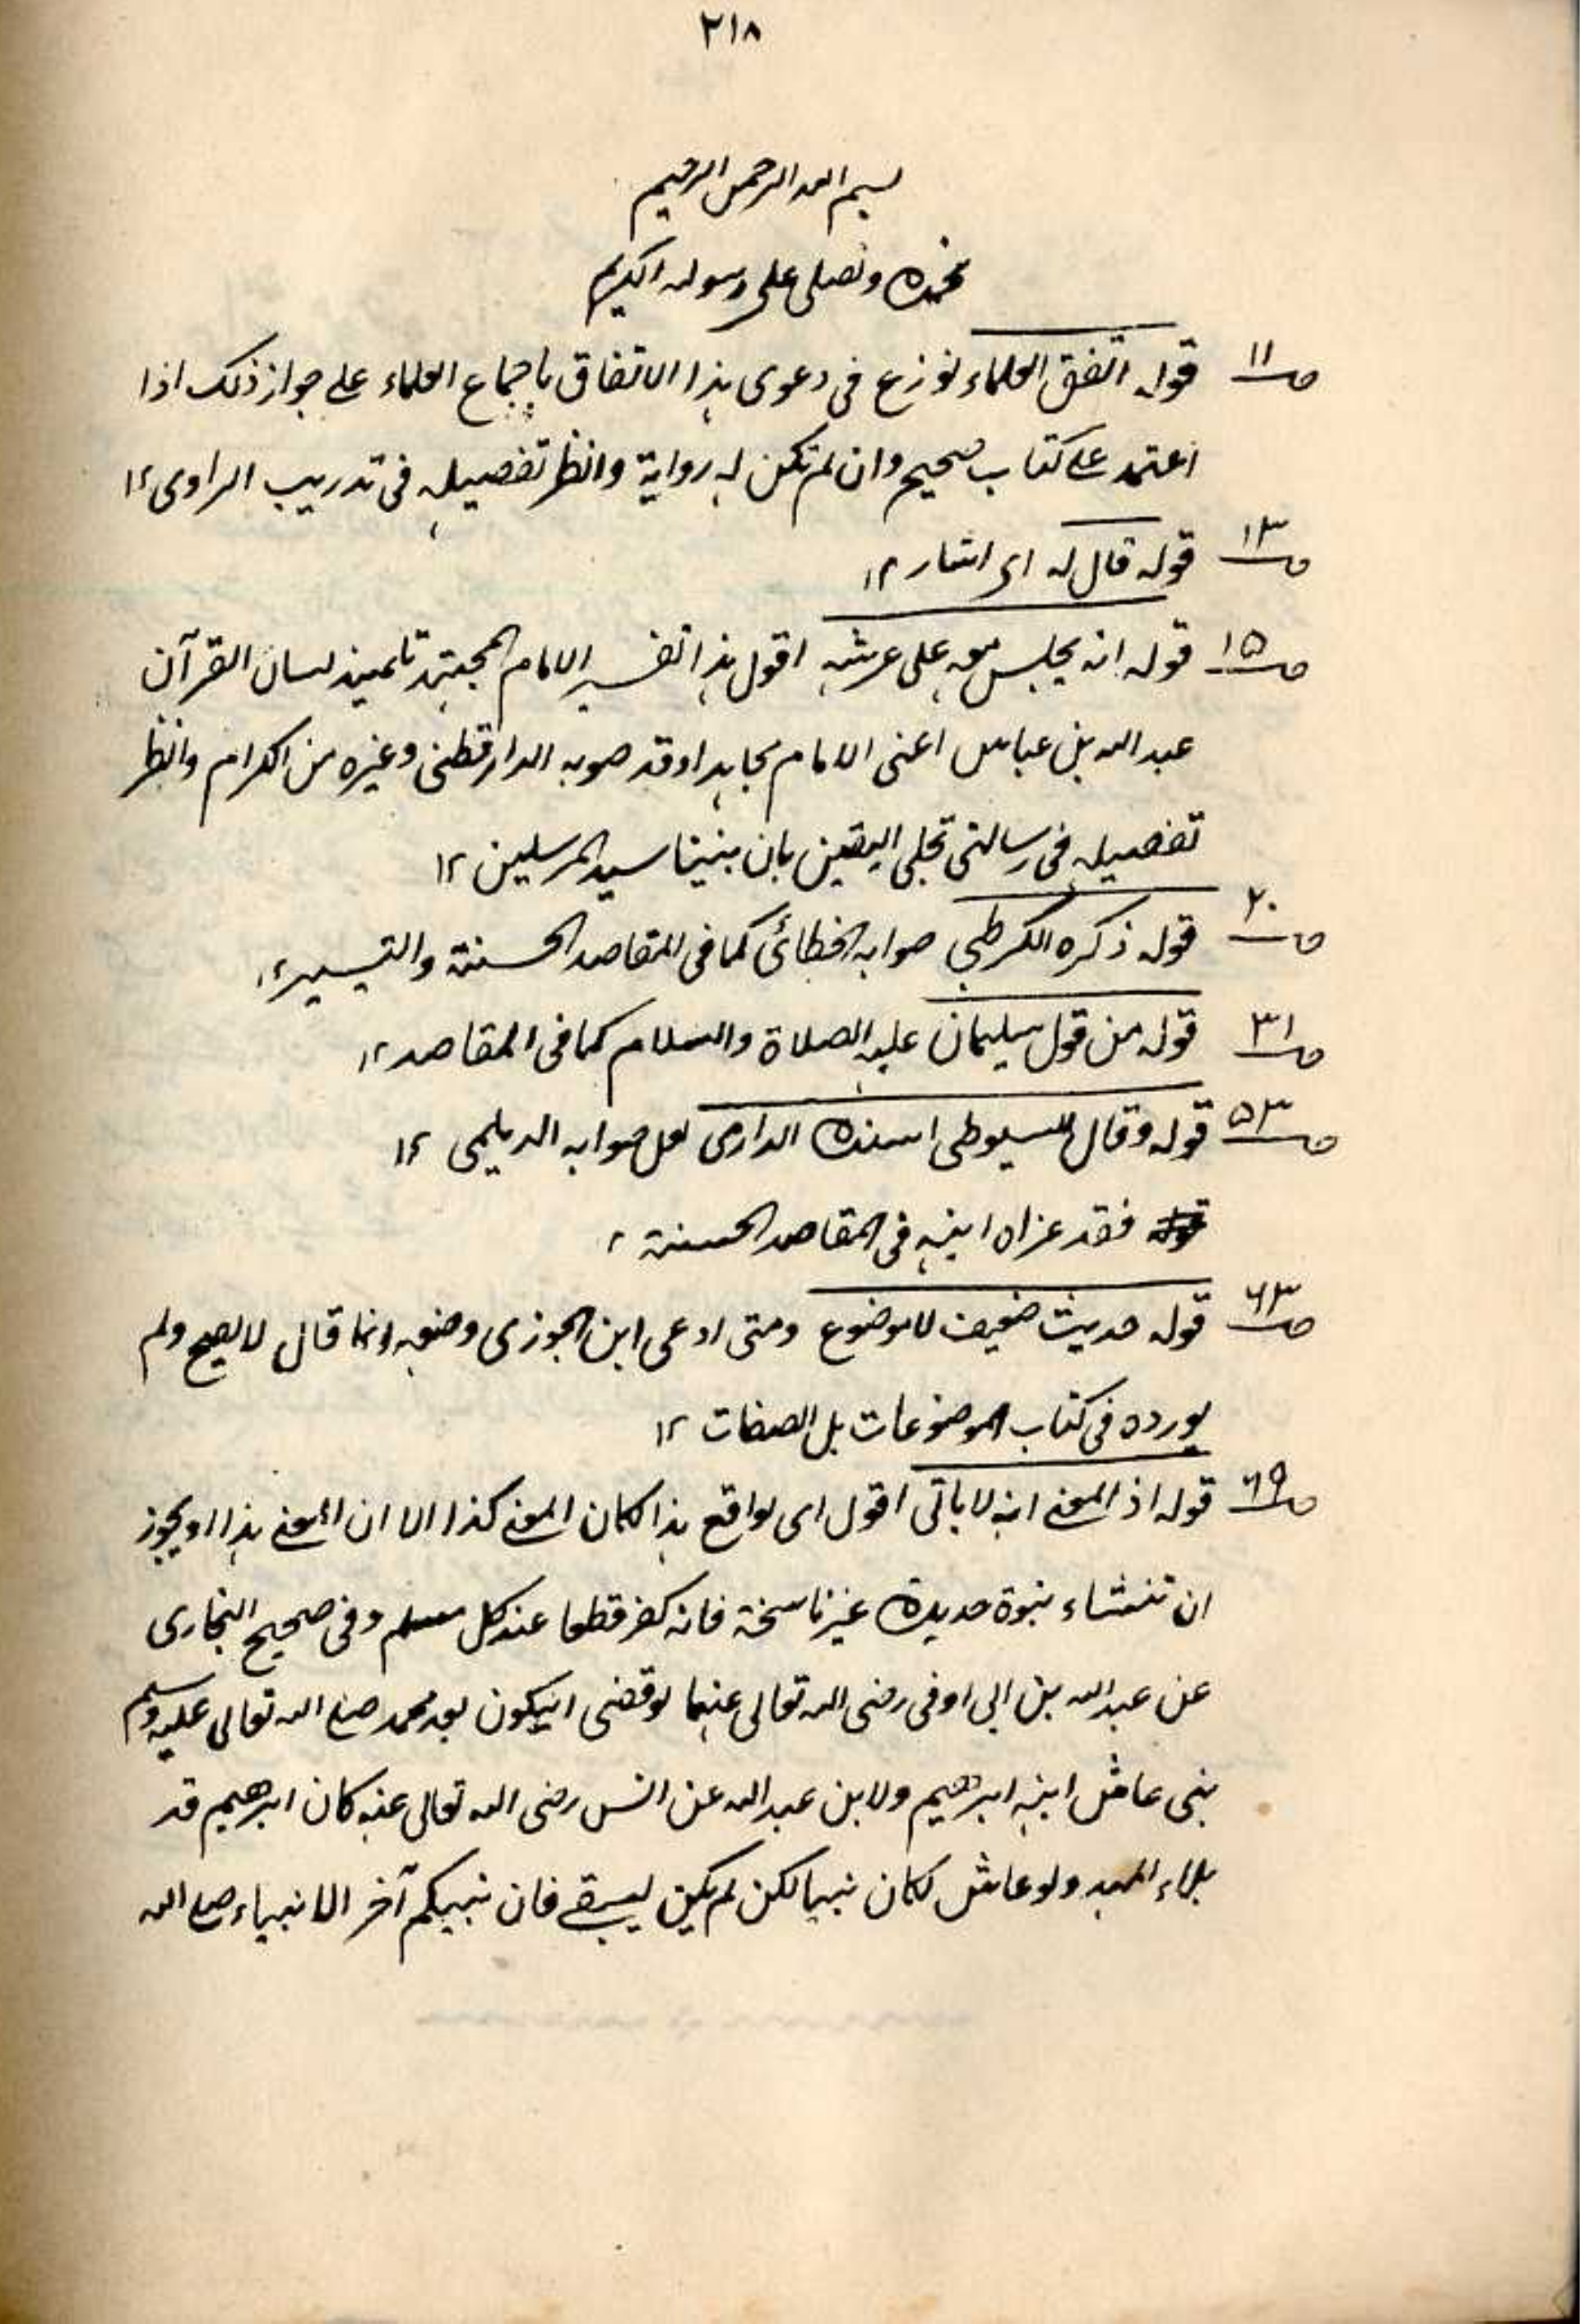 ٢١٨
بسم الله الرحمن الرحيم
نحمده ونصلى على رسوله الكريم
صـ١١ قوله اتفق العلماء نوزع فى دعوى هذا الاتفاق باجماع العلماء على جواز ذلك اذا
اعتمد على كتاب صحيح وان لم تكن له رواية وانظر تفصيله فى تدريب الراوى ١٢
صـ١٣ قوله قال له اى اشار ١٢
صـ١٥ قوله انه يجلس معه على عرشه اقول هذا تفسير الامام المجتهد تلميذ لسان القرآن
عبد الله بن عباس اعنى الامام مجاهدا وقد صوبه الدارقطنى وغيره من الكرام وانظر
تفصيله فى رسالتى تجلى اليقين بان نبينا سيد المرسلين ١٢
صـ٢٠ قوله ذكره القرطبي صوابه الخطابى كما فى المقاصد الحسنة والتيسير ١٢
صـ٣١ قوله من قول سليمان عليه الصلاة والسلام كما فى المقاصد ١٢
صـ٥٣ قوله وقال السيوطى اسنده الدارمى لعل صوابه الديلمى ١٢
فقد عزاه اليه فى المقاصد الحسنة ١٢
صـ٦٣ قوله حديث ضعيف لا موضوع ومتى ادعى ابن الجوزى وضعه انما قال لا يصح ولم
يورده فى كتاب الموضوعات بل الصفات ١٢
صـ٦٩ قوله اذ المعنى انه لا ياتى اقول اى لو اقع هذا لكان المعنى كذا الا ان المعنى هذا او يجوز
ان تنشاء نبوة جديدة غير ناسخة فانه كفر قطعا عند كل مسلم وفى صحيح البخارى
عن عبد الله بن ابى اوفى رضى الله تعالى عنهما لو قضى ان يكون بعد محمد صلى الله تعالى عليه وسلم
نبى عاش ابنه ابراهيم ولابن عبد الله عن انس رضى الله تعالى عنه كان ابراهيم قد
ملاء المهد ولو عاش لكان نبيا لكن لم يكن ليبقى فان نبيكم آخر الانبياء صلى الله